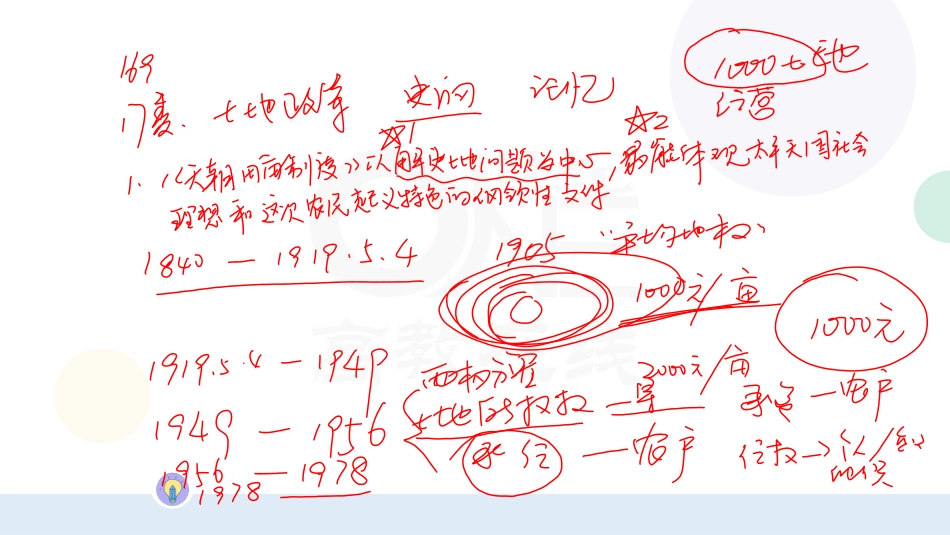 169
土地改革 史的 记忆
1000 土地
经营
☆1 ☆2
1.《天朝田亩制度》以解决土地问题为中心,最能体现太平天国社会
理想和这次农民起义特色的纲领性文件
1840 — 1919.5.4
1905 "平均地权"
1000元/亩
1000元
1919.5.4 — 1949
2000元/亩
1949 — 1956
土地所有权
承包 — 农户
1956 — 1978
— 农户
1978